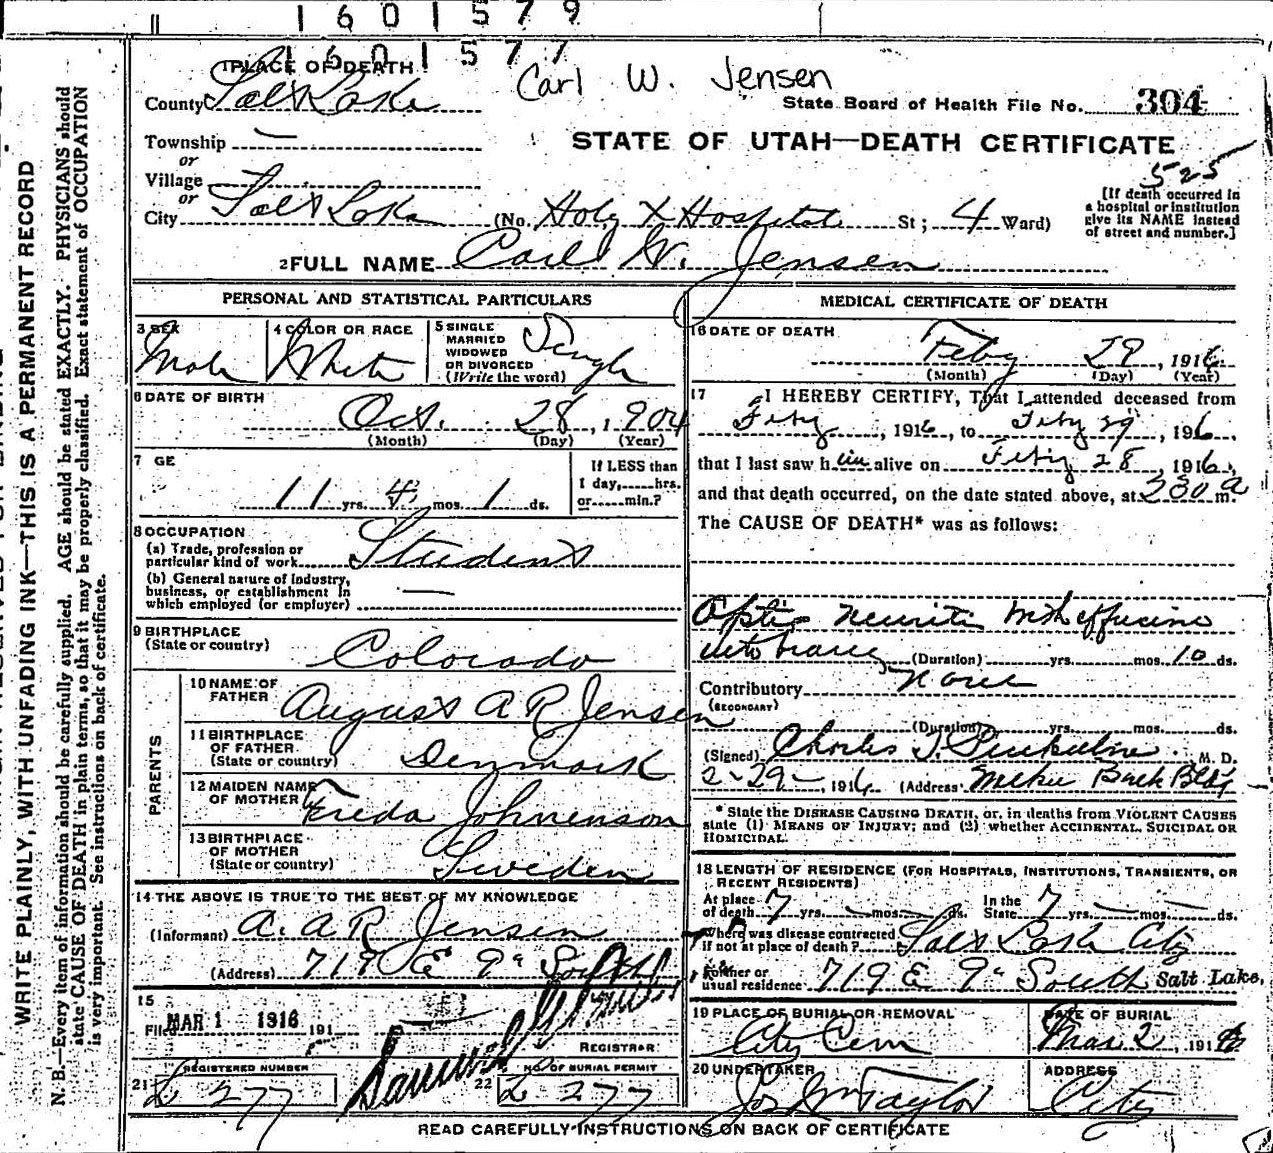 1601579
1601577
1 PLACE OF DEATH
Carl W. Jensen
County Salt Lake
State Board of Health File No. 304
Township —
STATE OF UTAH—DEATH CERTIFICATE
or
Village
525
or
City Salt Lake (No. Holy X Hospital St; 4 Ward)
[If death occurred in
a hospital or institution
give its NAME instead
of street and number.]
2 FULL NAME Carl W. Jensen
PERSONAL AND STATISTICAL PARTICULARS
3 SEX
Male
4 COLOR OR RACE
White
5 SINGLE
MARRIED
WIDOWED
OR DIVORCED
(Write the word)
Single
6 DATE OF BIRTH
Oct. 28, 1904
(Month) (Day) (Year)
7 GE
11 yrs. 4 mos. 1 ds.
If LESS than
1 day,.....hrs.
or.....min.?
8 OCCUPATION
(a) Trade, profession or
particular kind of work Student
(b) General nature of industry,
business, or establishment in
which employed (or employer) —
9 BIRTHPLACE
(State or country) Colorado
PARENTS
10 NAME OF
FATHER August A R Jensen
11 BIRTHPLACE
OF FATHER
(State or country) Denmark
12 MAIDEN NAME
OF MOTHER Freda Johnenson
13 BIRTHPLACE
OF MOTHER
(State or country) Sweden
14 THE ABOVE IS TRUE TO THE BEST OF MY KNOWLEDGE
(Informant) A. A R Jensen
(Address) 719 E 9" South
15
Filed MAR 1 1916 191
REGISTRAR
21 REGISTERED NUMBER
L 277
22 NO. OF BURIAL PERMIT
L 277
MEDICAL CERTIFICATE OF DEATH
16 DATE OF DEATH
Feby 29, 1916
(Month) (Day) (Year)
17 I HEREBY CERTIFY, That I attended deceased from
Feby, 1916, to Feby 29, 1916,
that I last saw him alive on Feby 28, 1916,
and that death occurred, on the date stated above, at 230 a m.
The CAUSE OF DEATH* was as follows:
Optic Neuritis with effusion
into brain (Duration) yrs. mos. 10 ds.
Contributory None
(SECONDARY)
(Duration) yrs. mos. ds.
(Signed) Charles M. D.
2-29-, 1916 (Address) Bank Bldg
* State the DISEASE CAUSING DEATH, or, in deaths from VIOLENT CAUSES
state (1) MEANS OF INJURY; and (2) whether ACCIDENTAL, SUICIDAL OR
HOMICIDAL.
18 LENGTH OF RESIDENCE (FOR HOSPITALS, INSTITUTIONS, TRANSIENTS, OR
RECENT RESIDENTS)
At place
of death 7 yrs. — mos. — ds.
In the
State 7 yrs. — mos. — ds.
Where was disease contracted
if not at place of death? Salt Lake City
Former or
usual residence 719 E 9" South Salt Lake,
19 PLACE OF BURIAL OR REMOVAL
City Cem
DATE OF BURIAL
Mar 2, 1916
20 UNDERTAKER
Jos Wm Taylor
ADDRESS
City
READ CAREFULLY INSTRUCTIONS ON BACK OF CERTIFICATE
WRITE PLAINLY, WITH UNFADING INK—THIS IS A PERMANENT RECORD
N. B.—Every item of information should be carefully supplied. AGE should be stated EXACTLY. PHYSICIANS should
state CAUSE OF DEATH in plain terms, so that it may be properly classified. Exact statement of OCCUPATION
is very important. See instructions on back of certificate.